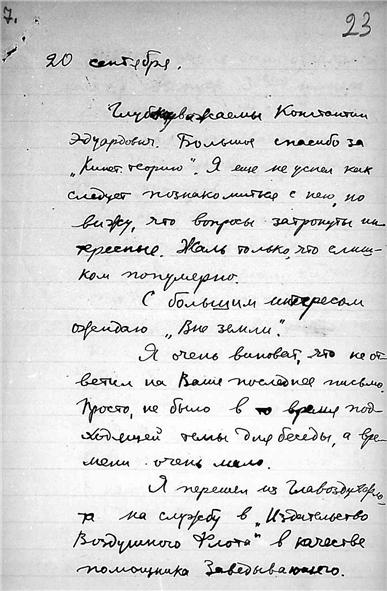 7.
23
20 сентября.
Глубокоуважаемы Константин
Эдуардович. Большое спасибо за
„Кинет. теорию". Я еще не успел как
следует познакомиться с нею, но
вижу, что вопросы затронуты ин-
тересные. Жаль только, что слиш-
ком популярно.
С большим интересом
ожидаю „Вне земли".
Я очень виноват, что не от-
ветил на Ваше последнее письмо.
Просто, не было в то время под-
ходящей темы для беседы, а вре-
мени очень мало.
Я перешел из Главоздухфло-
та на службу в „Издательство
Воздушного Флота" в качестве
помощника Заведывающего.